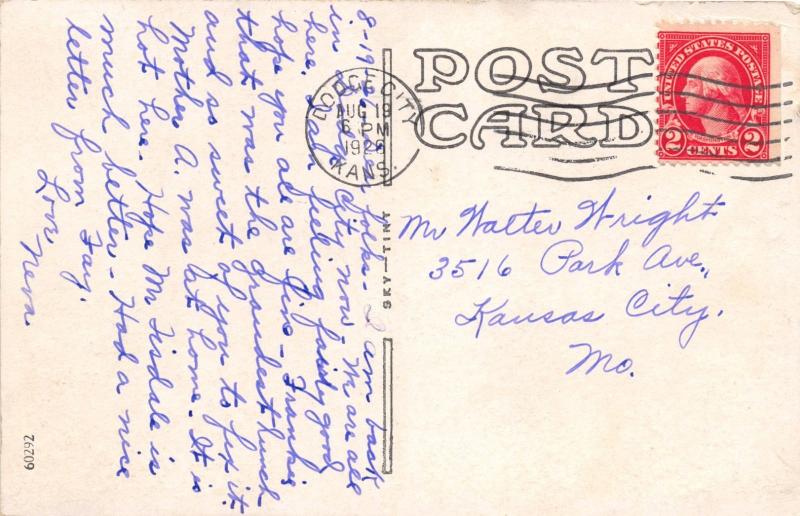 POST
CARD
UNITED STATES POSTAGE
2 CENTS 2
DODGE CITY
AUG 19
6 PM
KANS.
8-19
folks - I am back
in Dodge City now - We are all
here. Dad feeling fairly good
hope you all are fine - Frankie
that was the grandest lunch
and so sweet of you to fix it.
Mother A. was at home. It is
hot here. Hope Mr Tisdale is
much better - Had a nice
letter from Fay.
Love Neva.
SKY-TINT
Mr Walter Wright
3516 Park Ave.,
Kansas City.
Mo.
60292